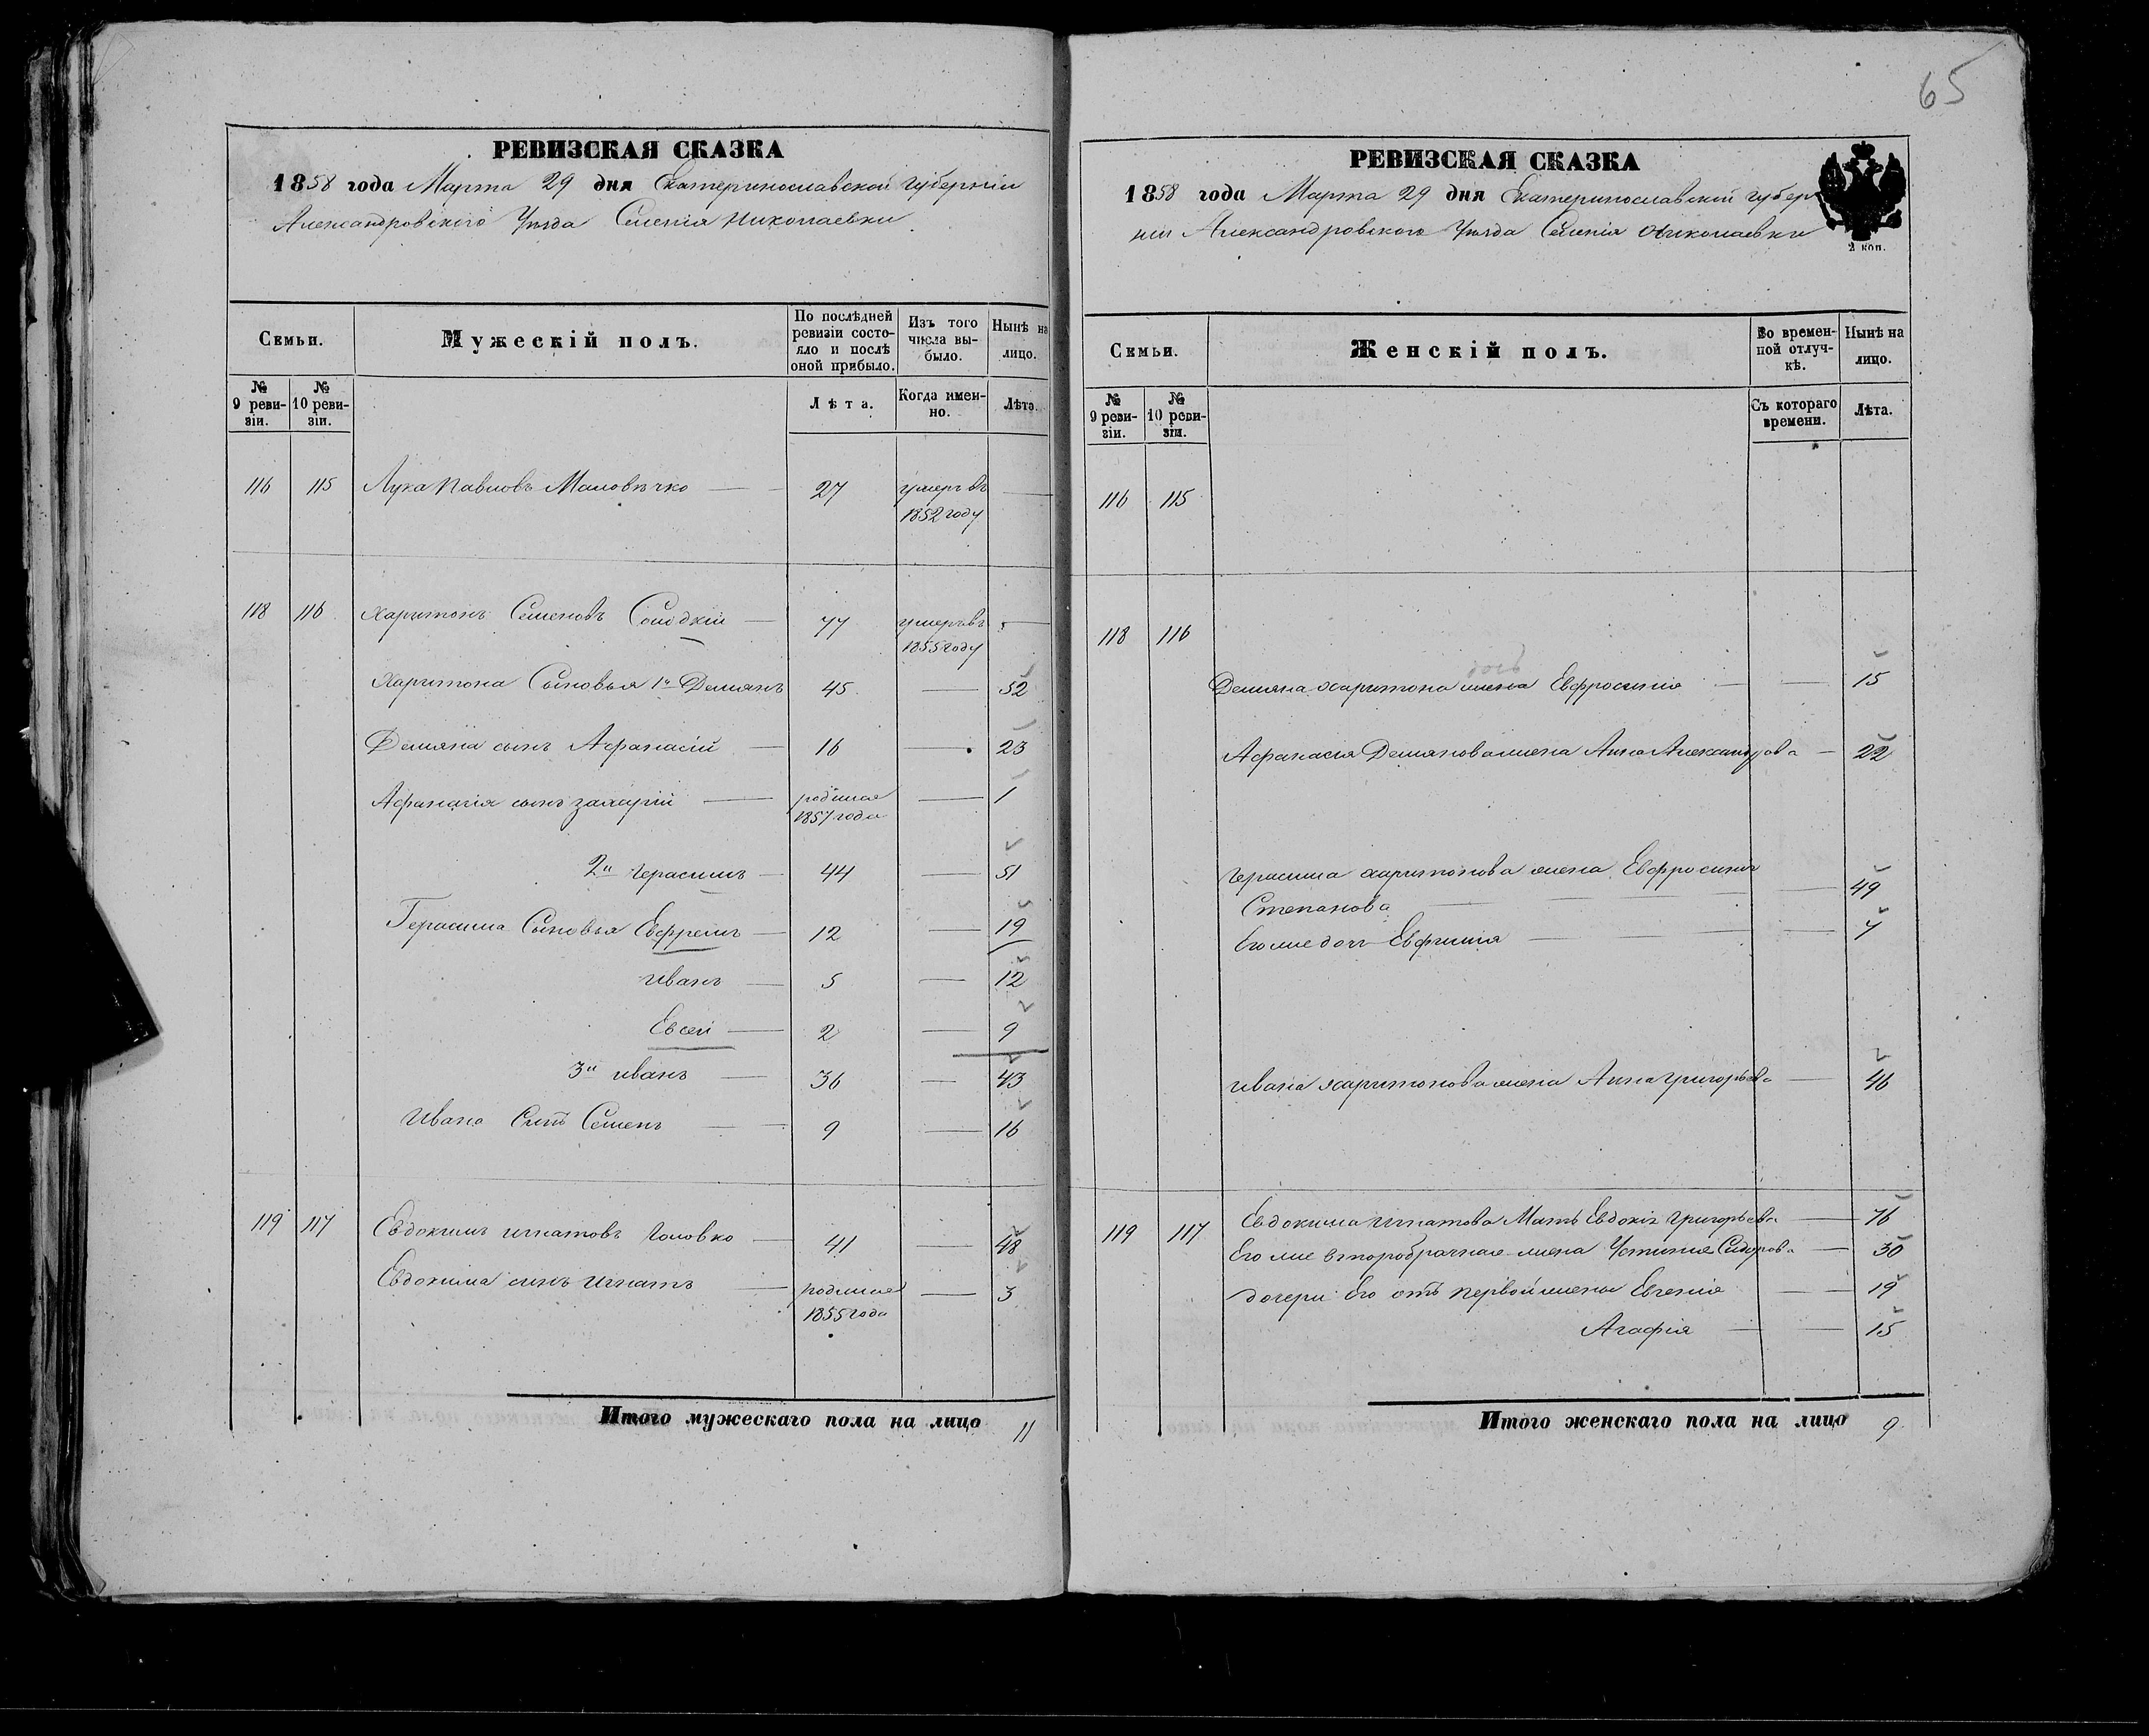 65
РЕВИЗСКАЯ СКАЗКА
1858 года Марта 29 дня Екатеринославской губерніи
Александровского Уѣзда Селенія Николаевки
Семьи.
Мужескій полъ.
По послѣдней ревизіи состояло и послѣ оной прибыло.
Изъ того числа выбыло.
Нынѣ на лицо.
№ 9 ревизіи.
№ 10 ревизіи.
Лѣта.
Когда именно.
Лѣта.
116 115 Лука Павловъ 27 умеръ въ
1852 году
118 116 Харитонъ Семеновъ Солодкій 77 умеръ въ
1855 году
Харитона Сыновья 1й Демянъ 45 52
Демяна сынъ Афанасій 16 23
Афанасія сынъ Захарій родился 1
1857 года
2й Герасимъ 44 51
Герасима Сыновья Евфремъ 12 19
Иванъ 5 12
Евсей 2 9
3й Иванъ 36 43
Ивана Семенъ 9 16
119 117 Евдокимъ Игнатовъ Головко 41 48
Евдокима сынъ Игнатъ родился 3
1855 года
Итого мужескаго пола на лицо 11
РЕВИЗСКАЯ СКАЗКА
1858 года Марта 29 дня Екатеринославской губер
ніи Александровского Уѣзда Селенія Николаевки
2 коп.
Семьи.
Женскій полъ.
Во временной отлучкѣ.
Нынѣ на лицо.
№ 9 ревизіи.
№ 10 ревизіи.
Съ котораго времени.
Лѣта.
116 115
118 116
Демяна Харитона жена Евфросинія 15
Афанасія Демянова жена Анна Александрова 22
Герасима Харитонова жена Евфросинія
Степанова 49
Его же дочь Евфимія 7
Ивана Харитонова жена Анна Григорьева 46
119 117 Евдокима Игнатова Мать Евдокія Григорьева 76
Его же второбрачная жена Устинія Сидорова 30
дочери Его отъ первой жены Евгенія 19
Агафія 15
Итого женскаго пола на лицо 9